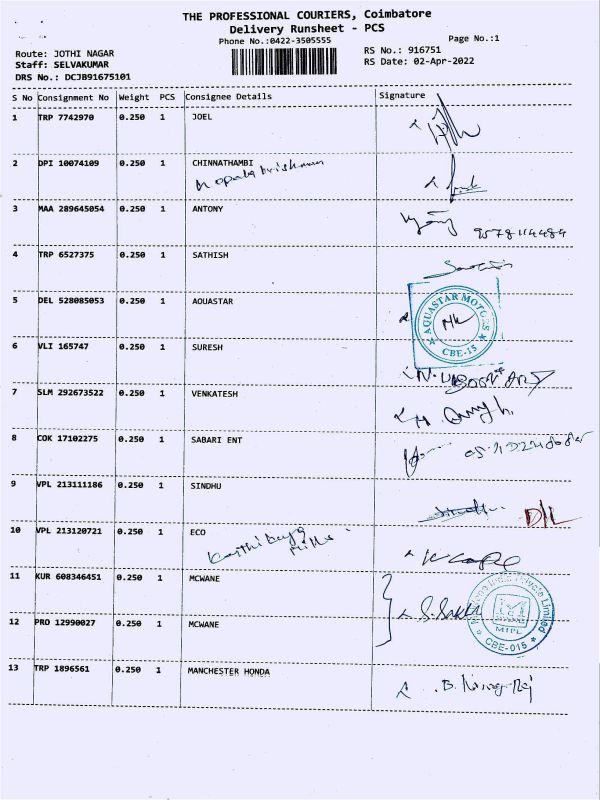 THE PROFESSIONAL COURIERS, Coimbatore
Delivery Runsheet - PCS
Phone No.:0422-3505555
Page No.:1
Route: JOTHI NAGAR
Staff: SELVAKUMAR
DRS No.: DCJB91675101
RS No.: 916751
RS Date: 02-Apr-2022
S No Consignment No Weight PCS Consignee Details Signature
1 TRP 7742970 0.250 1 JOEL
2 DPI 10074109 0.250 1 CHINNATHAMBI
3 MAA 289645054 0.250 1 ANTONY
9578114484
4 TRP 6527375 0.250 1 SATHISH
5 DEL 528085053 0.250 1 AOUASTAR
AQUASTAR MOTORS
CBE-15
6 VLI 165747 0.250 1 SURESH
7 SLM 292673522 0.250 1 VENKATESH
8 COK 17102275 0.250 1 SABARI ENT
9 VPL 213111186 0.250 1 SINDHU
D/L
10 VPL 213120721 0.250 1 ECO
11 KUR 608346451 0.250 1 MCWANE
12 PRO 12990027 0.250 1 MCWANE
India Private Limited
MIPL
CBE-015
13 TRP 1896561 0.250 1 MANCHESTER HONDA